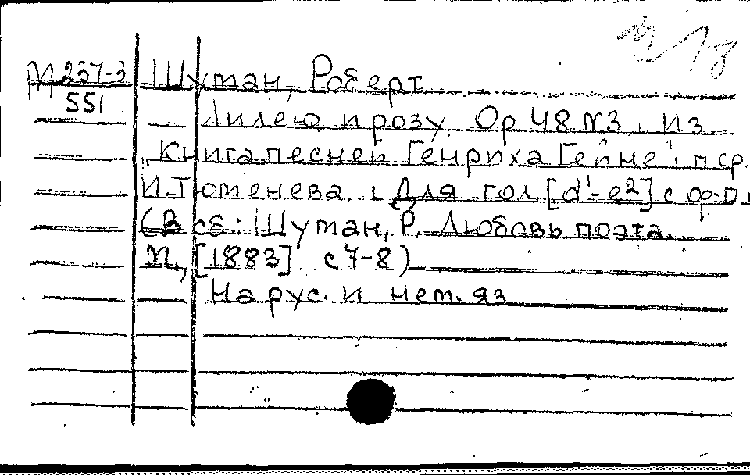 М 237-3 Шуман, Роберт
551 Лилею и розу. Op 48 N3. Из
"Книга песней Генриха Гейне", пер.
И. Тютенева. Для гол [d¹-e²] с ф-п.
(В сб: Шуман, Р. Любовь поэта.
М, [1883] с 7-8)
На рус. и нем. яз